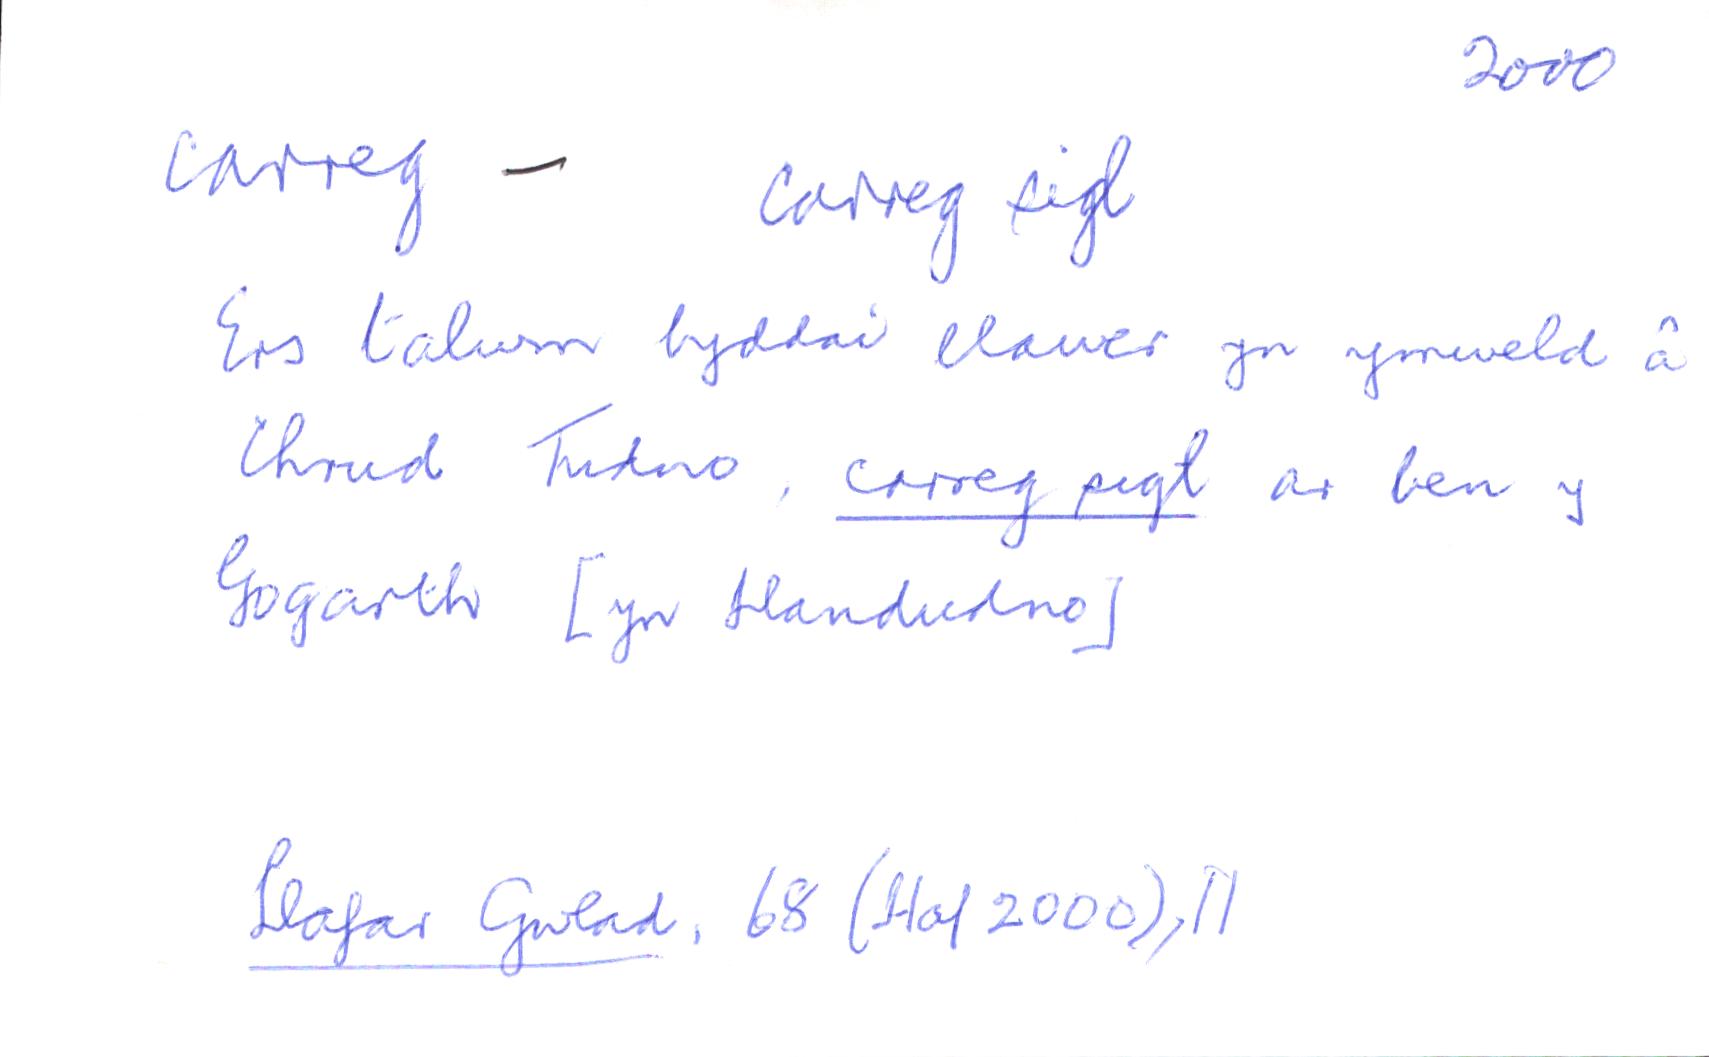 2000
carreg – carreg sigl
Ers talwm byddai llawer yn ymweld â
Chrud Tudno, carreg sigl ar ben y
Gogarth [yn Llandudno]
Llafar Gwlad, 68 (Haf 2000), 11